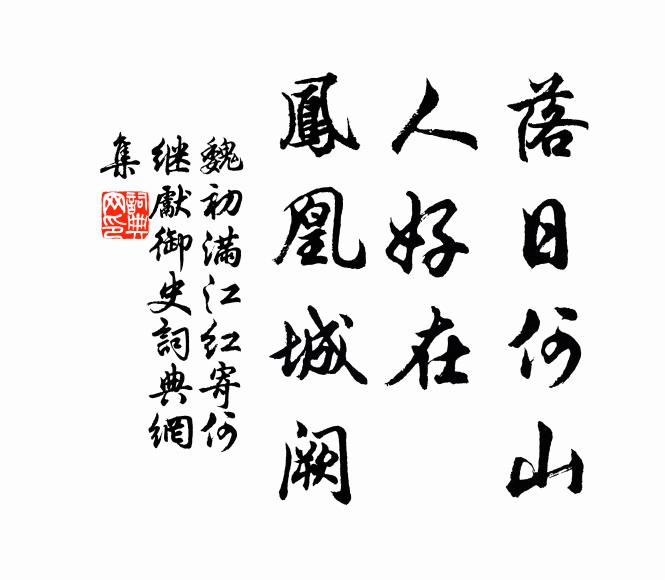 落日何山
人好在
鳳凰城闕
魏初滿江紅寄何
继獻御史詞典網
集
詞典
网印